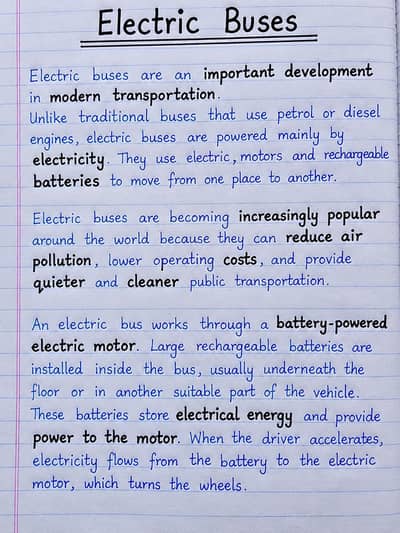 Electric Buses
Electric buses are an important development
in modern transportation.
Unlike traditional buses that use petrol or diesel
engines, electric buses are powered mainly by
electricity. They use electric, motors and rechargeable
batteries to move from one place to another.
Electric buses are becoming increasingly popular
around the world because they can reduce air
pollution, lower operating costs, and provide
quieter and cleaner public transportation.
An electric bus works through a battery-powered
electric motor. Large rechargeable batteries are
installed inside the bus, usually underneath the
floor or in another suitable part of the vehicle.
These batteries store electrical energy and provide
power to the motor. When the driver accelerates,
electricity flows from the battery to the electric
motor, which turns the wheels.